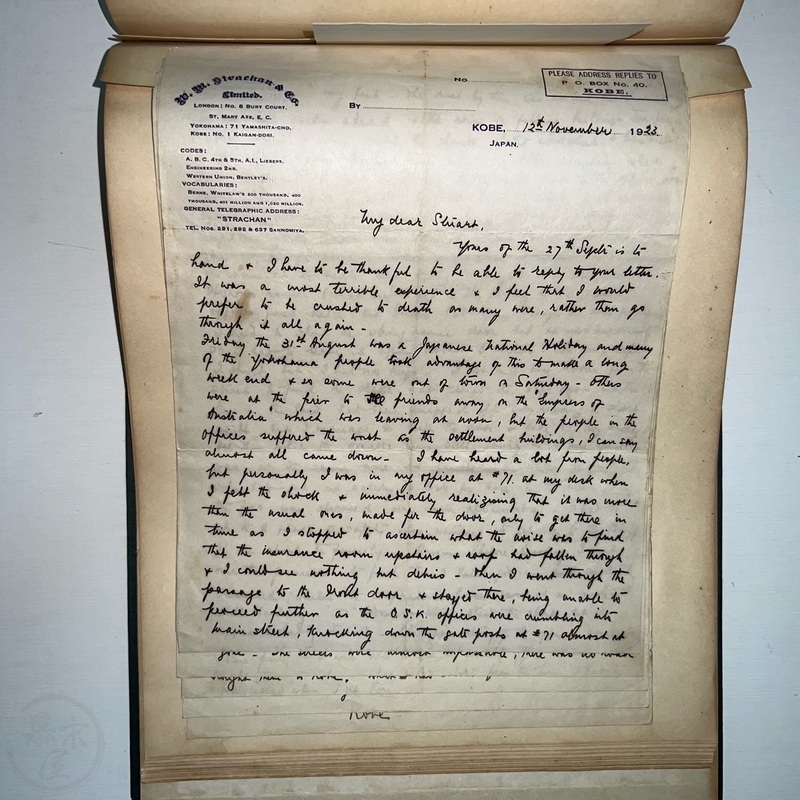 W. M. Strachan & Co.
Limited.
London: No. 8 Bury Court,
St. Mary Axe, E. C.
Yokohama: 71 Yamashita-cho.
Kobe: No. 1 Kaigan-dori.
CODES:
A. B. C. 4th & 5th, A.I., Liebers.
Engineering 2nd.
Western Union, Bentley's.
VOCABULARIES:
Berne, Whitelaw's 200 Thousand, 400
Thousand, 401 Million and 1,020 Million.
GENERAL TELEGRAPHIC ADDRESS:
"STRACHAN"
Tel. Nos. 291, 292 & 637 Sannomiya.
No.
By
PLEASE ADDRESS REPLIES TO
P. O. BOX No. 40.
KOBE.
KOBE, 12th November 1923.
JAPAN.
My dear Stuart,
Yours of the 27th Sept: is to
hand & I have to be thankful to be able to reply to your letter.
It was a most terrible experience & I feel that I would
prefer to be crushed to death as many were, rather than go
through it all again -
Friday the 31st August was a Japanese National Holiday and many
of the Yokohama people took advantage of this to make a long
week end & so some were out of town on Saturday - Others
were at the pier to friends away on the "Empress of
Australia" which was leaving at noon, but the people in the
offices suffered the worst as the settlement buildings, I can say
almost all came down - I have heard a lot from people,
but personally I was in my office at #71. at my desk when
I felt the shock & immediately realizing that it was more
than the usual ones, made for the door, only to get there in
time as I stopped to ascertain what the noise was to find
that the insurance room upstairs & roof had fallen through
& I could see nothing but debris - Then I went through the
passage to the front door & stayed there, being unable to
proceed further as the O.S.K. offices were crumbling into
main street, knocking down the gate posts at #71 almost at
The streets were almost impassable, there was no